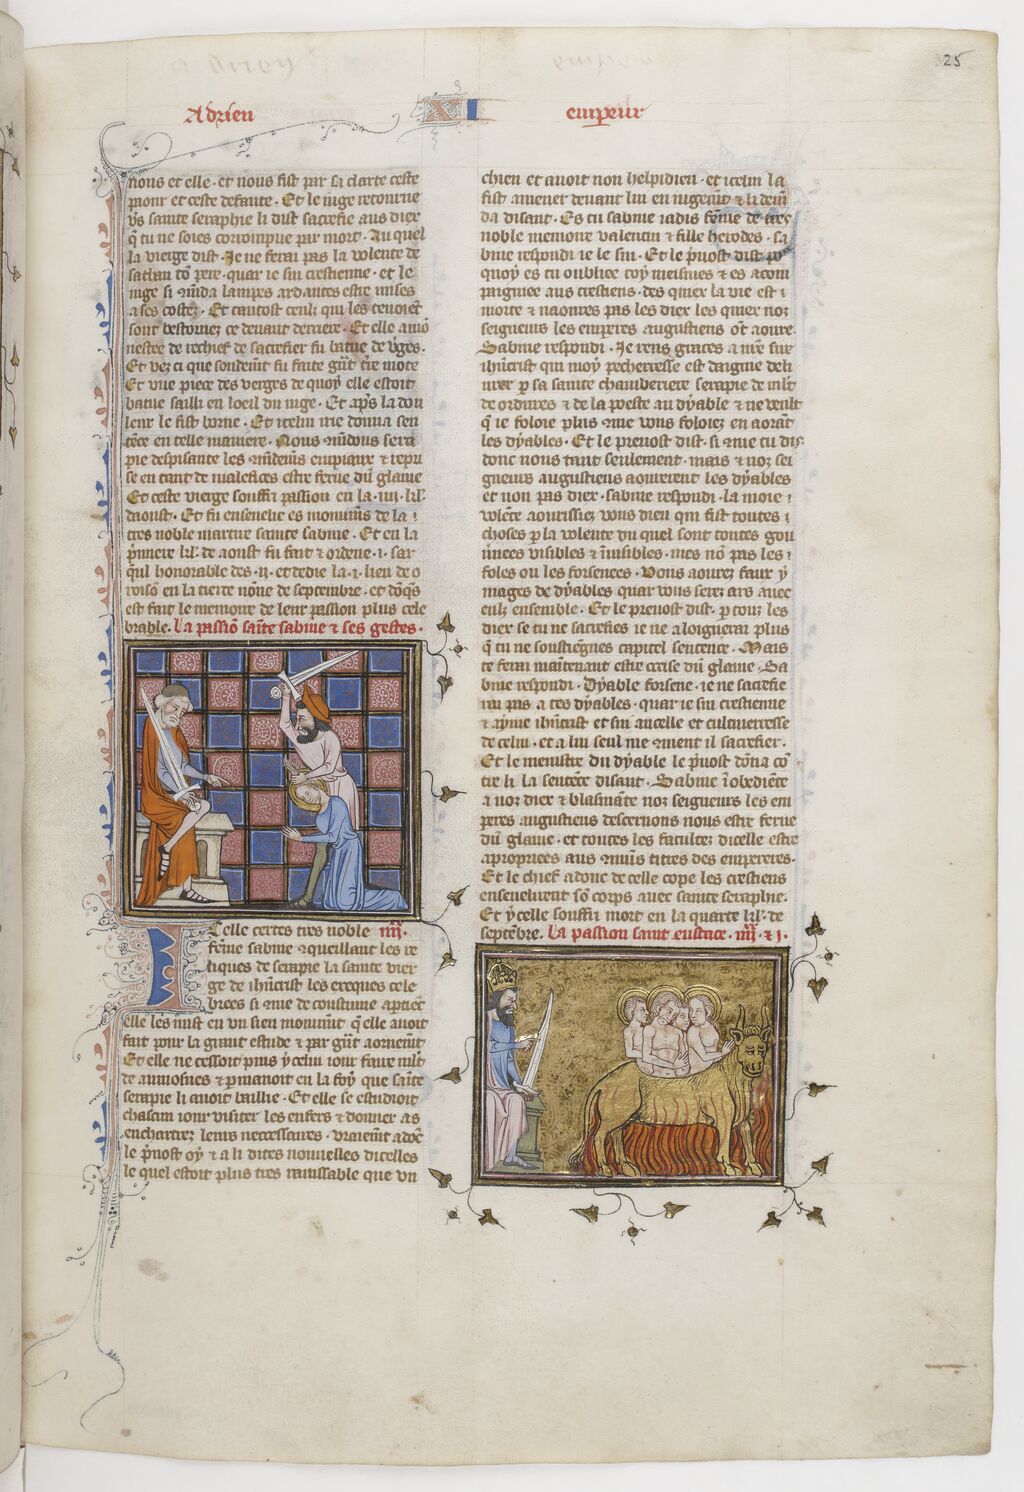 25
Adrien XI empereur
nous et elle · et nous fist par sa clarte ceste
paour et ceste defaute · Et le iuge retourne
vs sainte seraphie li dist sacrefie aus diex
q̄ tu ne soies corrompue par mort · Au quel
la vierge dist · Je ne ferai pas la volente de
sathan tō pere · quar ie sui crestienne · et le
iuge si cōmāda lampes ardantes estre mises
a ses costez · Et tantost ceulz qui les tenoiēt
sont bestornez ce deuant derriere · Et elle amō
nestee de rechief de sacrefier fu batue de v̄ges ·
Et vez ci que soudemt fu faite gūt t̄re mote
Et vne piece des verges de quoy elle estoit
batue sailli en loeil du iuge · Et ap̄s la dou
leur le fist borne · Et icelui iuge donna sen
tēce en celle maniere · Nous cōmādons sera
pie despisante les cōmādemēs empiaux et repri
se en tant de malefices estre ferue dū glaiue
Et ceste vierge souffri passion en la · iiij · kl̄ ·
daoust · Et fu enseuelie es monumēs de la
tres noble martire sainte sabine · Et en la
p̄miere kl̄ · de aoust fu fait et ordene · i · sar
q̄ul honorable des · ij · et dedie la · i · lieu de o
roisō en la tierce nōne de septembre · et dōqs
est fait le memoire de leur passion plus cele
brable. La passiō saīte sabine et ses gestes ·
Icelle certes tres noble · iiij ·
fēme sabine acqueillant les re
liques de serapie la sainte vier
ge de ihūcrist les exeques cele
brees si cōme de coustume aptiēt
elle les mist en vn sien monumēt q̄ elle auoit
fait pour la graut estude et par gūt aornemt
Et elle ne cessoit puis ycelui iour faire mlt
de aumosnes et pmanoit en la foy que saīte
serapie li auoit baillie · Et elle se estudioit
chascun iour visiter les enfers et donner as
enchartrez leurs neccessaires · vraiemt adōc
le p̄uost oy et a li dites nouuelles dicelles
le quel estoit plus tres rauissable que vn
chien et auoit non helpidien · et icelui la
fist amener deuant lui en iugemt et li demā
da disant · Es tu sabine iadis fēme de tres
noble memoire valentin et fille herodes · sa
bine respondi ie le sui · Et le p̄uost dist por
quoy es tu oubliee toy meismes et es acom
paigniee aus crestiens · des quiex la vie est
morte et naoures pas les diex les quiex noz
seigneurs les emperes augustiens ōt aoure ·
Sabine respondi · Je rens graces a n̄re sire
ihūcrist qui moy pecheresse est daigine deli
urer p sa sainte chamberiere serapie de mlt
de ordures et de la poeste au dyable et ne veult
q̄ ie foloie plus cōme vous foloiez en aorāt
les dyables · Et le preuost dist · si cōme tu dis
donc nous tant seulement · mais et noz sei
gneurs augustiens aourent les dyables
et non pas diex · sabine respondi · la moie
volēte aourissiez vous dieu qui fist toutes
choses p la volente du quel sont toutes gou
u̇nees visibles et inuisibles · mes nō pas les
foles ou les forsenees · Vous aourez faux y
mages de dyables quar vous serez ars auec
eulz ensemble · Et le preuost dist · p touz les
diex se tu ne sacrefies ie ne aloignerai plus
q̄ tu ne soustiēgnes capitel sentence · Mais
te ferai maītenant estre occise dū glaiue · Sa
bine respondi · Dyable forsene · ie ne sacrefie
rai pas a tes dyables · quar ie sui crestienne
et ayme ihūcrist et sui ancelle et cultiueresse
de celui · et a lui seul me cōuient il sacrefier ·
Et le menistre du dyable le p̄uost dōna cō
tre li la sentēce disant · Sabine īobediēte
a noz diex et blasmāte noz seigneurs les em
peres augustiens descernons nous estre ferue
dū glaiue · et toutes les facultez dicelle estre
apropriees aus cōmūs titres des empereres ·
Et le chief adonc de celle cope les crestiens
enseuelirent sō corps auec sainte seraphie ·
Et ycelle souffri mort en la quarte kl̄ · de
septēbre. La passion saint eustace · iiij · et i ·